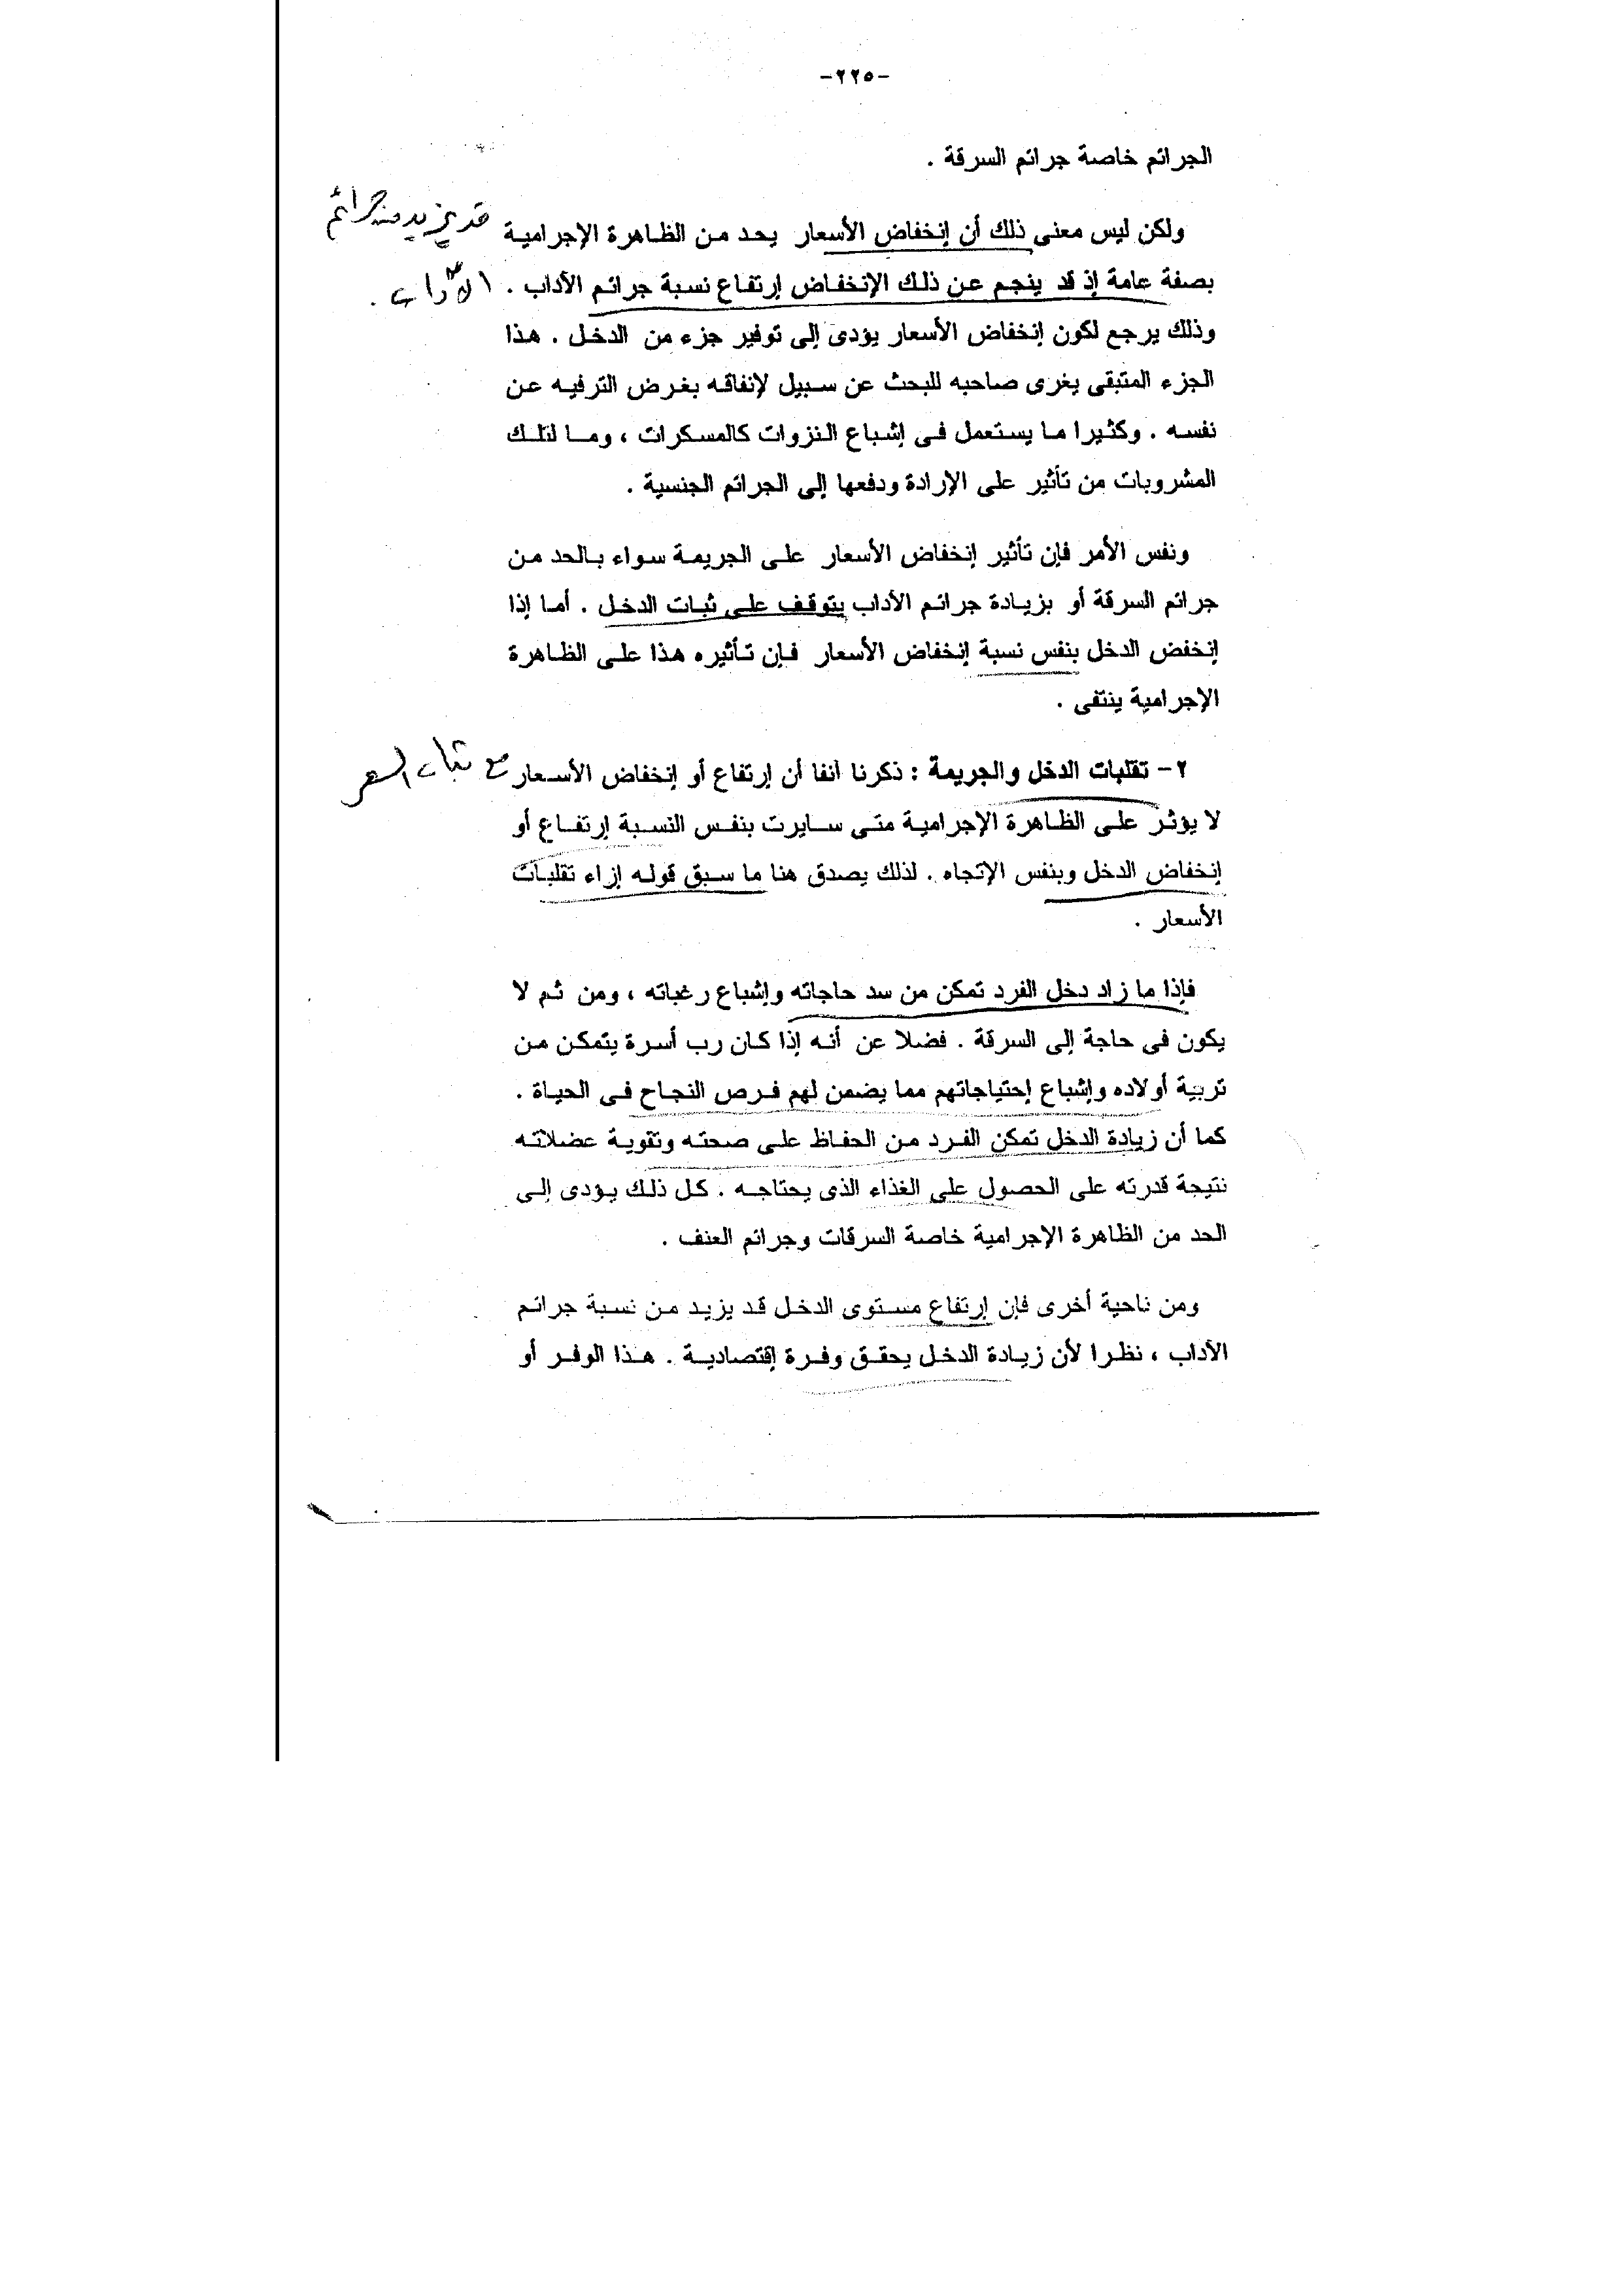 -٢٢٥-
الجرائم خاصة جرائم السرقة .
ولكن ليس معنى ذلك أن إنخفاض الأسعار يحد من الظاهرة الإجرامية
قد يزيد من جرائم
بصفة عامة إذ قد ينجم عن ذلك الإنخفاض إرتفاع نسبة جرائم الآداب .
الآداب .
وذلك يرجع لكون إنخفاض الأسعار يؤدى إلى توفير جزء من الدخل . هذا
الجزء المتبقى يغرى صاحبه للبحث عن سبيل لإنفاقه بغرض الترفيه عن
نفسه . وكثيرا ما يستعمل فى إشباع النزوات كالمسكرات ، وما لتلك
المشروبات من تأثير على الإرادة ودفعها إلى الجرائم الجنسية .
ونفس الأمر فإن تأثير إنخفاض الأسعار على الجريمة سواء بالحد من
جرائم السرقة أو بزيادة جرائم الآداب يتوقف على ثبات الدخل . أما إذا
إنخفض الدخل بنفس نسبة إنخفاض الأسعار فإن تأثيره هذا على الظاهرة
الإجرامية ينتفى .
٢- تقلبات الدخل والجريمة : ذكرنا آنفا أن إرتفاع أو إنخفاض الأسعار
مع ثبات السعر
لا يؤثر على الظاهرة الإجرامية متى سايرت بنفس النسبة إرتفاع أو
إنخفاض الدخل وبنفس الإتجاه . لذلك يصدق هنا ما سبق قوله إزاء تقلبات
الأسعار .
فإذا ما زاد دخل الفرد تمكن من سد حاجاته وإشباع رغباته ، ومن ثم لا
يكون فى حاجة إلى السرقة . فضلا عن أنه إذا كان رب أسرة يتمكن من
تربية أولاده وإشباع إحتياجاتهم مما يضمن لهم فرص النجاح فى الحياة .
كما أن زيادة الدخل تمكن الفرد من الحفاظ على صحته وتقوية عضلاته
نتيجة قدرته على الحصول على الغذاء الذى يحتاجه . كل ذلك يؤدى إلى
الحد من الظاهرة الإجرامية خاصة السرقات وجرائم العنف .
ومن ناحية أخرى فإن إرتفاع مستوى الدخل قد يزيد من نسبة جرائم
الآداب ، نظرا لأن زيادة الدخل يحقق وفرة إقتصادية . هذا الوفر أو